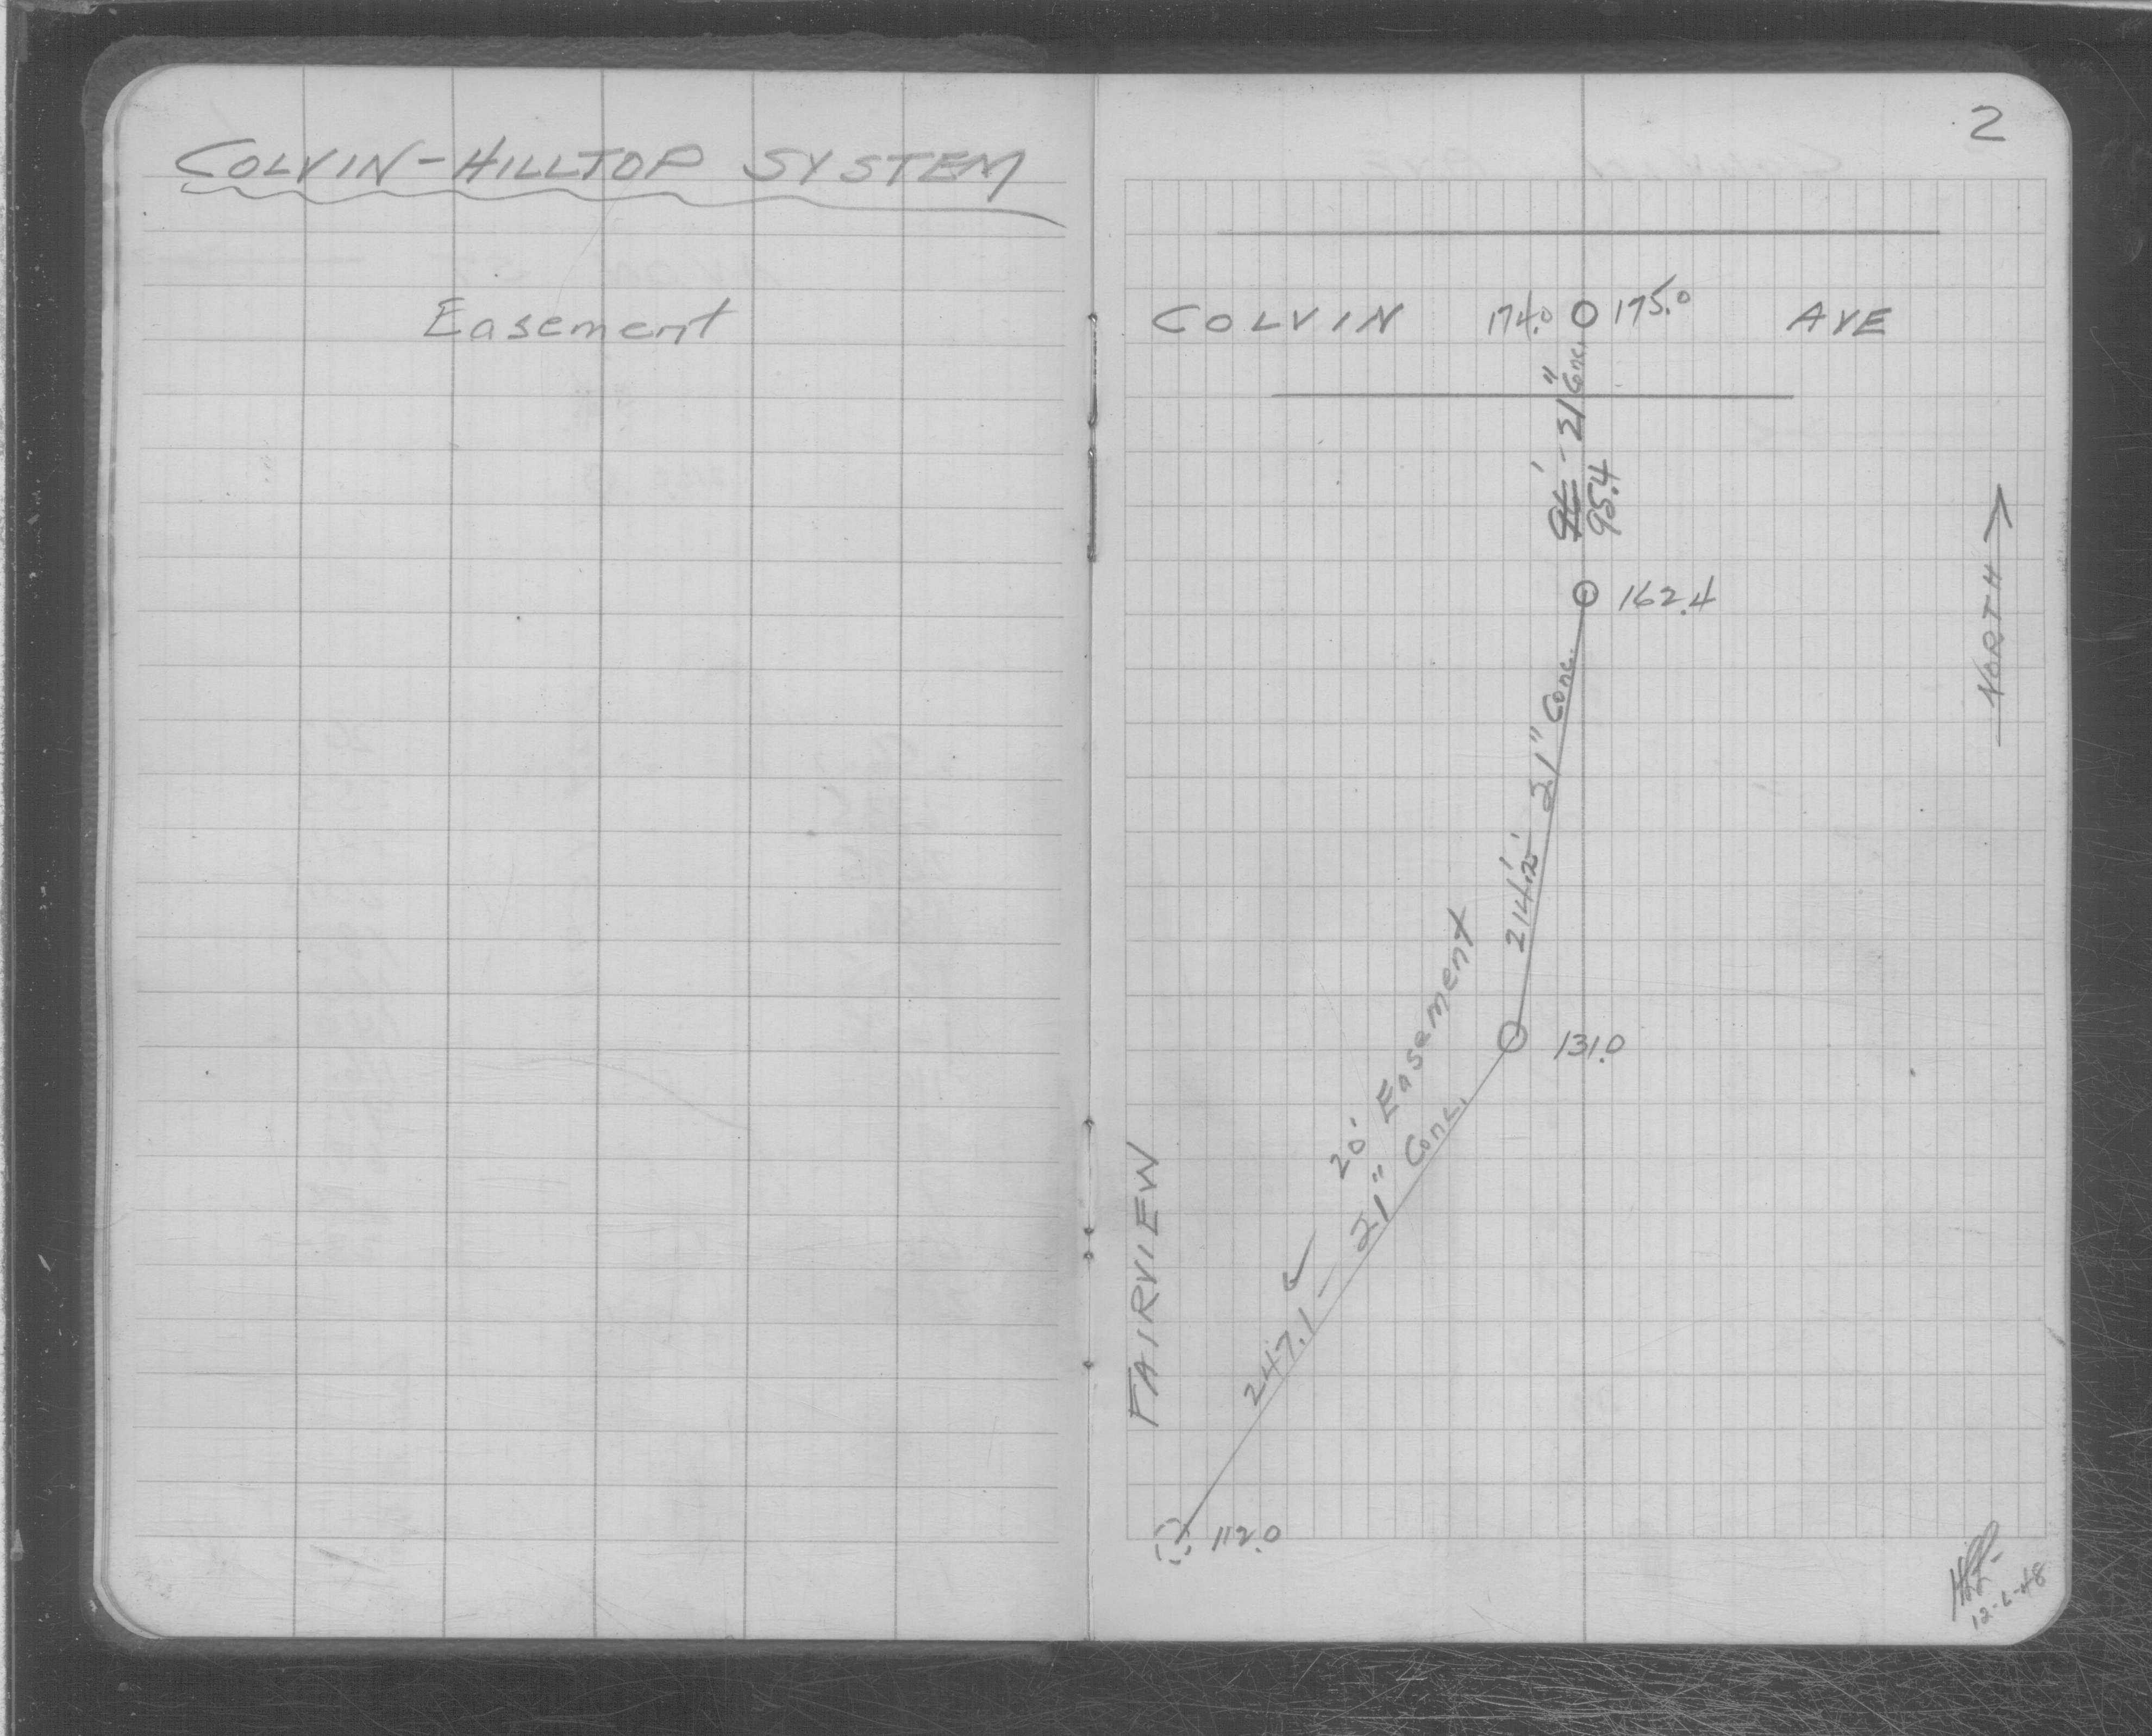 COLVIN-HILLTOP SYSTEM
Easement
2
COLVIN 174.0 175.0 AVE
96' - 21" Conc.
95.4
162.4
NORTH
214.2' 21" Conc.
131.0
20' Easement
247.1 - 21" Conc.
FAIRVIEW
112.0